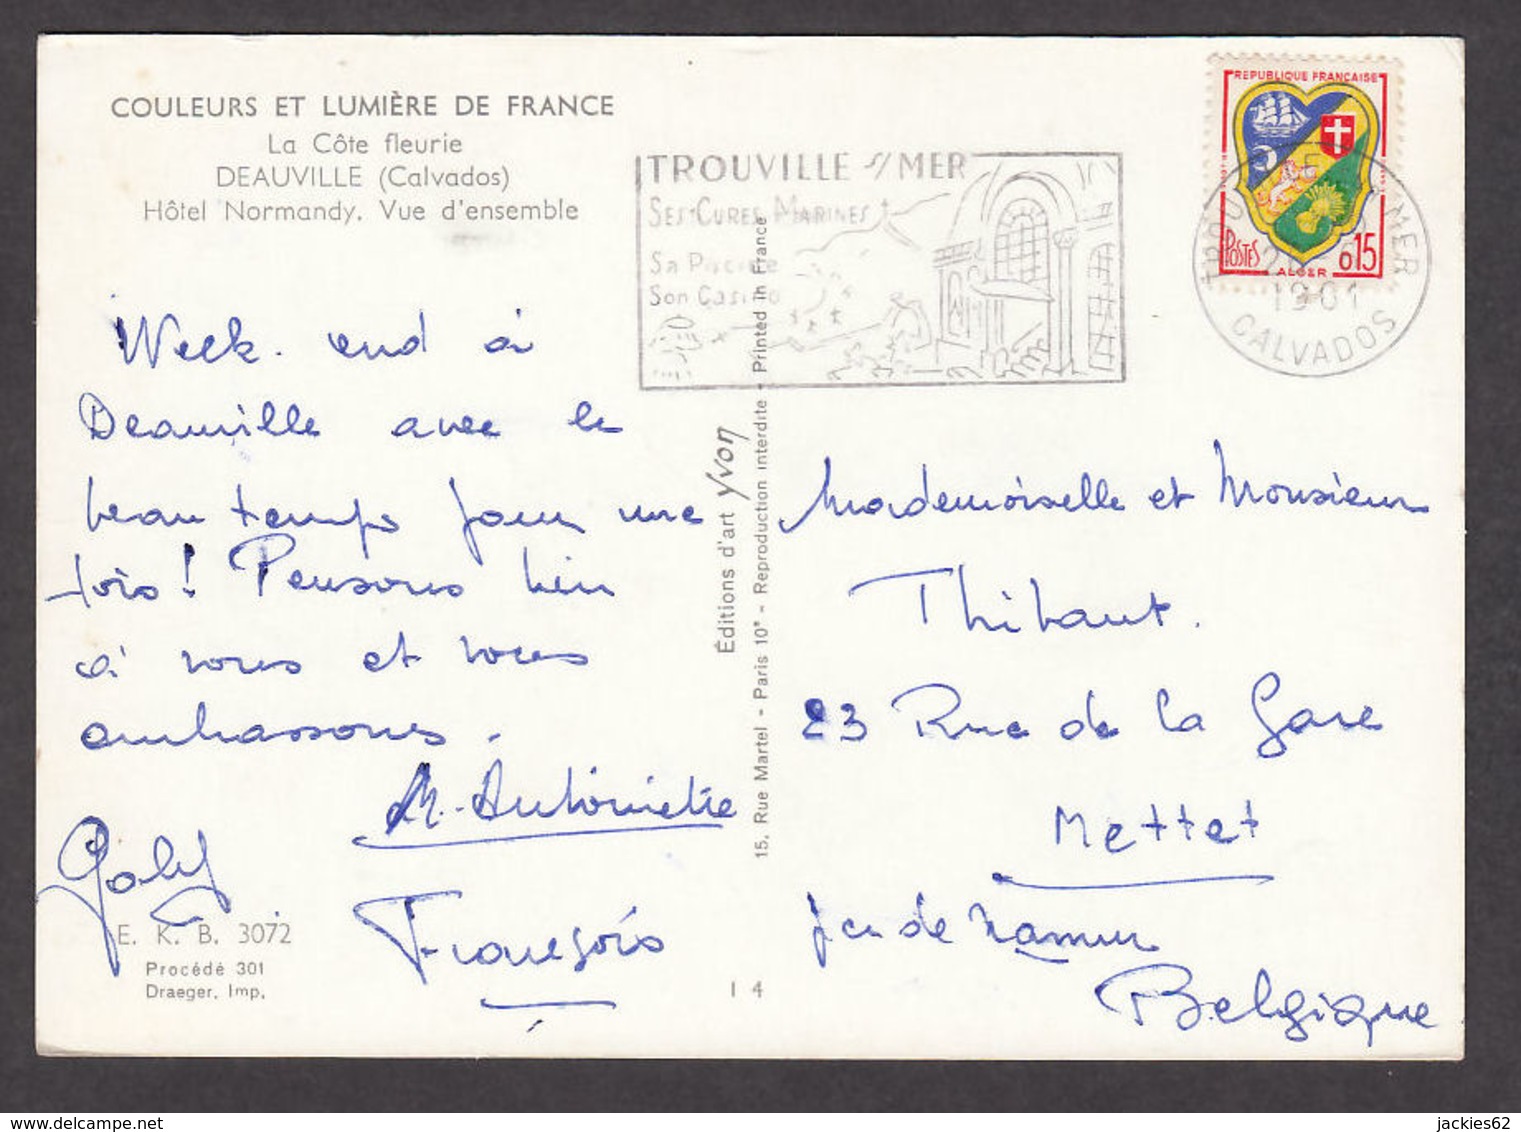 COULEURS ET LUMIÈRE DE FRANCE
La Côte fleurie
DEAUVILLE (Calvados)
Hôtel Normandy. Vue d'ensemble
TROUVILLE s/ MER
SES CURES MARINES
Sa Piscine
Son Casino
REPUBLIQUE FRANÇAISE
POSTES
ALGER
0,15
MER
CALVADOS
Week-end à
Deauville avec le
beau temps pour une
fois! Pensons bien
à vous et vous
embrassons.
M. Antoinette
François
Éditions d'art Yvon
15, Rue Martel - Paris 10e - Reproduction interdite - Printed in France
Mademoiselle et Monsieur
Thibaut.
23 Rue de la Gare
Mettet
de Namur
Belgique
E. K. B. 3072
Procédé 301
Draeger, Imp.
1 4
delcampe.net
jackies62